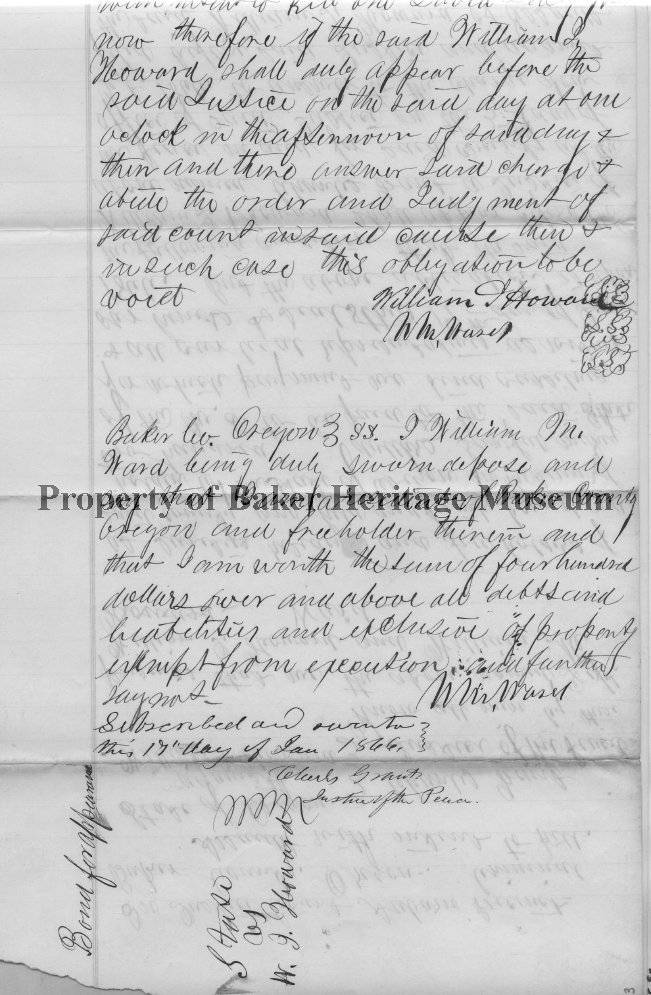 with intent to kill and
now therefore if the said William J
Howard shall duly appear before the
said Justice on the said day at one
oclock in the afternoon of said day &
then and there answer said charge &
abide the order and Judgment of
said court in said cause then &
in such case this obligation to be
void
William J Howard
Wm Ward
Baker Co. Oregon } SS. I William M.
Ward being duly sworn depose and
say that I am a resident of Baker County
Property of Baker Heritage Museum
Oregon and freeholder therein and
that I am worth the sum of four hundred
dollars over and above all debts and
liabilities and exclusive of property
exempt from execution and further
say not
Wm Ward
Subscribed and sworn to
this 17" day of Jan 1866.
Charls Grant
Justice of the Peace.
Bond for appearance
State
vs
W. J. Howard